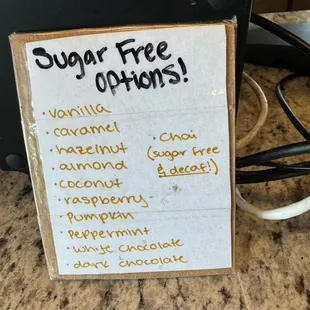 Sugar Free
OPtions!
· vanilla
· caramel
· hazelnut
· almond
· coconut
· raspberry
· Pumpkin
· Peppermint
· white chocolate
· dark chocolate
· Chai
(sugar free
& decaf!)